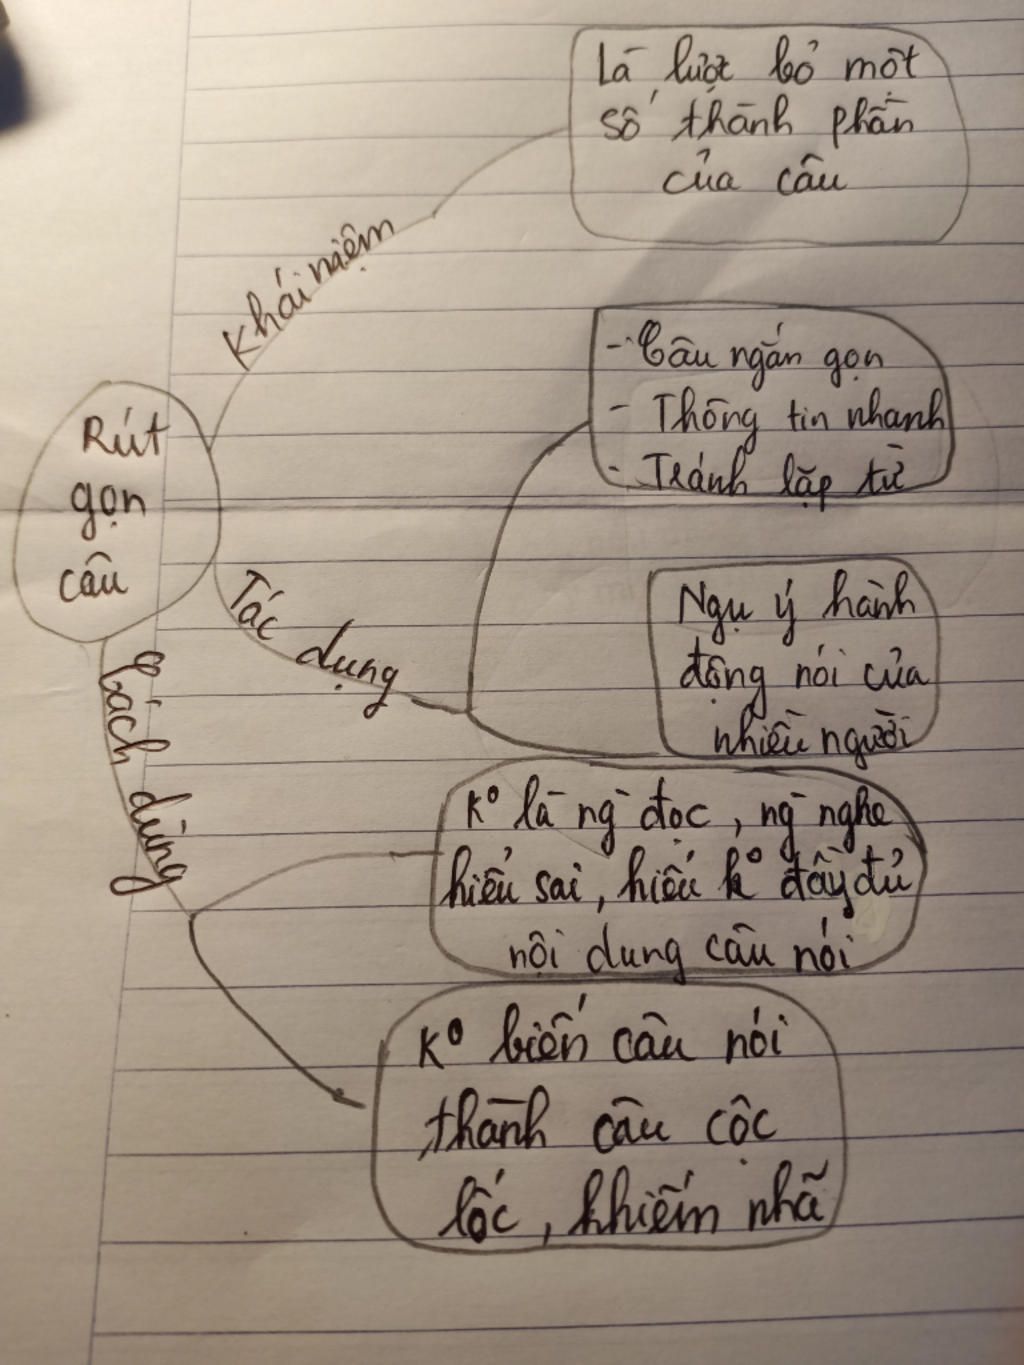 Rút
gọn
câu
Khái niệm
Là lượt bỏ một
số thành phần
của câu
Tác dụng
- Câu ngắn gọn
- Thông tin nhanh
- Tránh lặp từ
Ngụ ý hành
động nói của
nhiều người
Cách dùng
K° là ng đọc, ng nghe
hiểu sai, hiểu k° đầy đủ
nội dung câu nói
K° biến câu nói
thành câu cộc
lốc, khiếm nhã